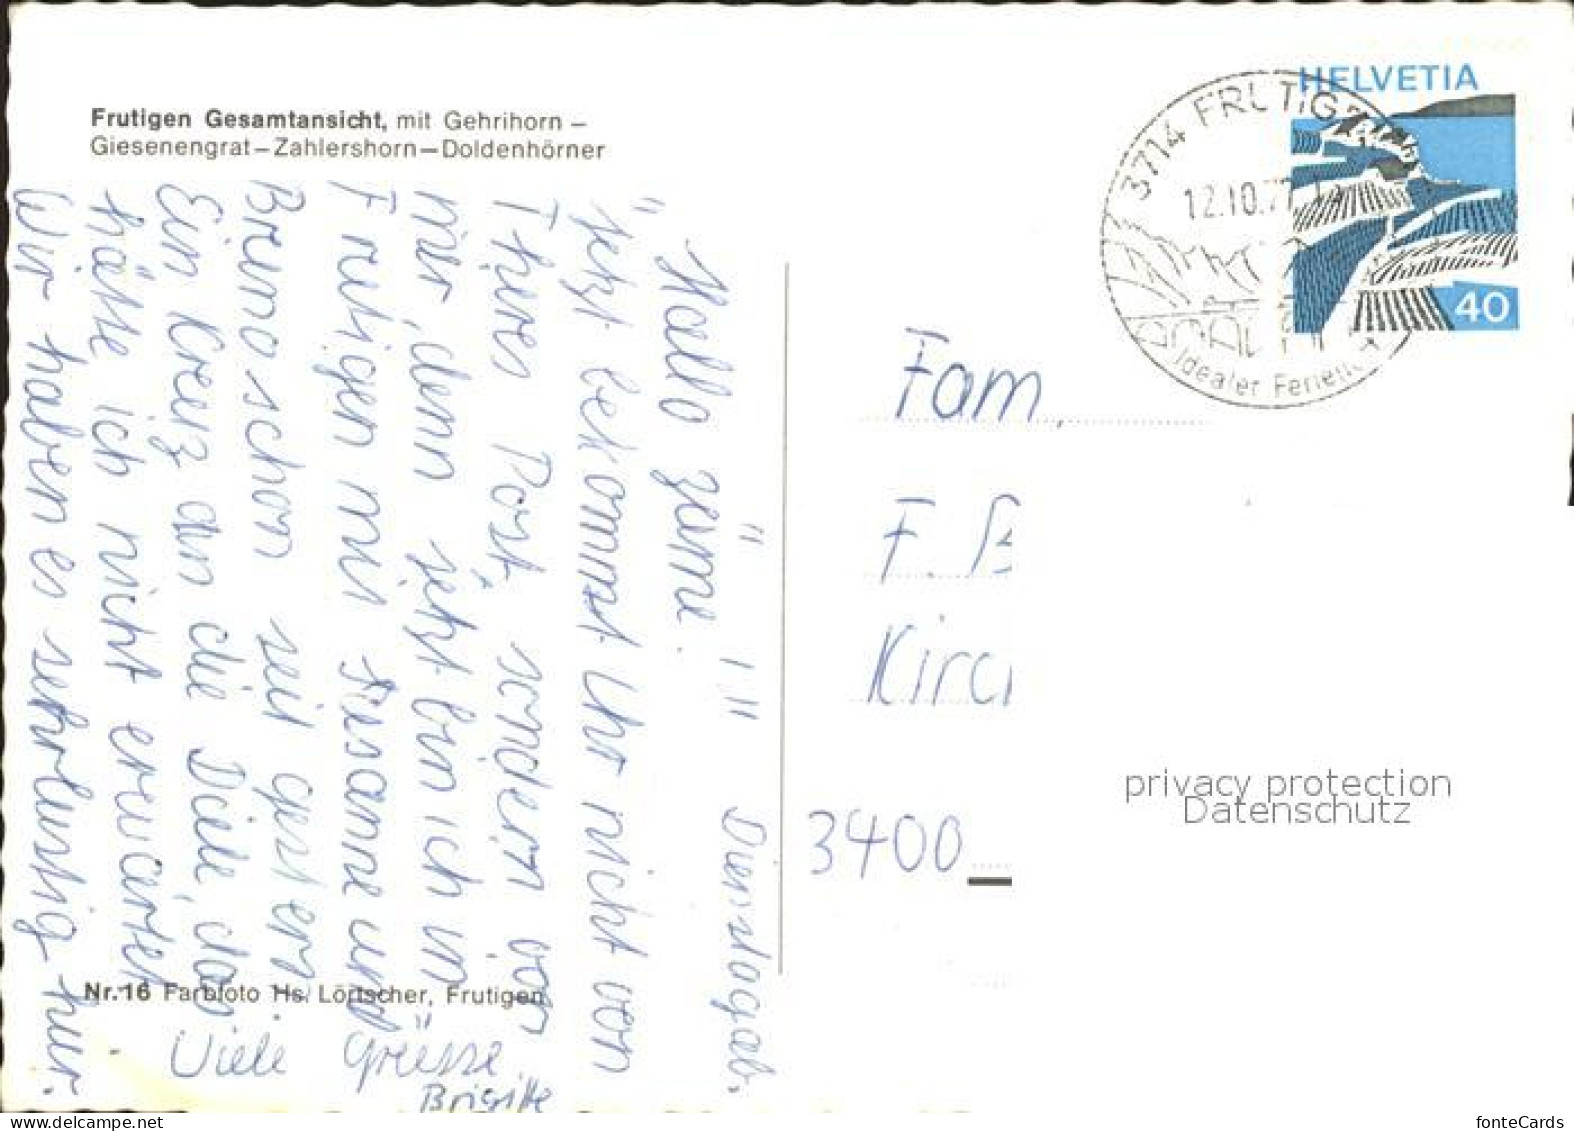 Frutigen Gesamtansicht, mit Gehrihorn –
Giesenengrat–Zahlershorn–Doldenhörner
HELVETIA
40
3714 FRUTIG
12.10.77
Idealer Ferieno
Dienstagab.
Hallo zäme!
"Jetzt bekommt Ihr nicht von
Theres Post, sondern von
mir, denn jetzt bin ich in
Frutigen mit Susanne und
Bruno schon seit gestern
Ein Kreuz an die Diele, das
hätte ich nicht erwartet
Wir haben es sehr lustig hier.
Viele Grüsse
Brigitte
Nr. 16 Farbfoto Hs. Lörtscher, Frutigen
Fam.
F. B
Kirc
3400
privacy protection
Datenschutz
www.delcampe.net
fonteCards